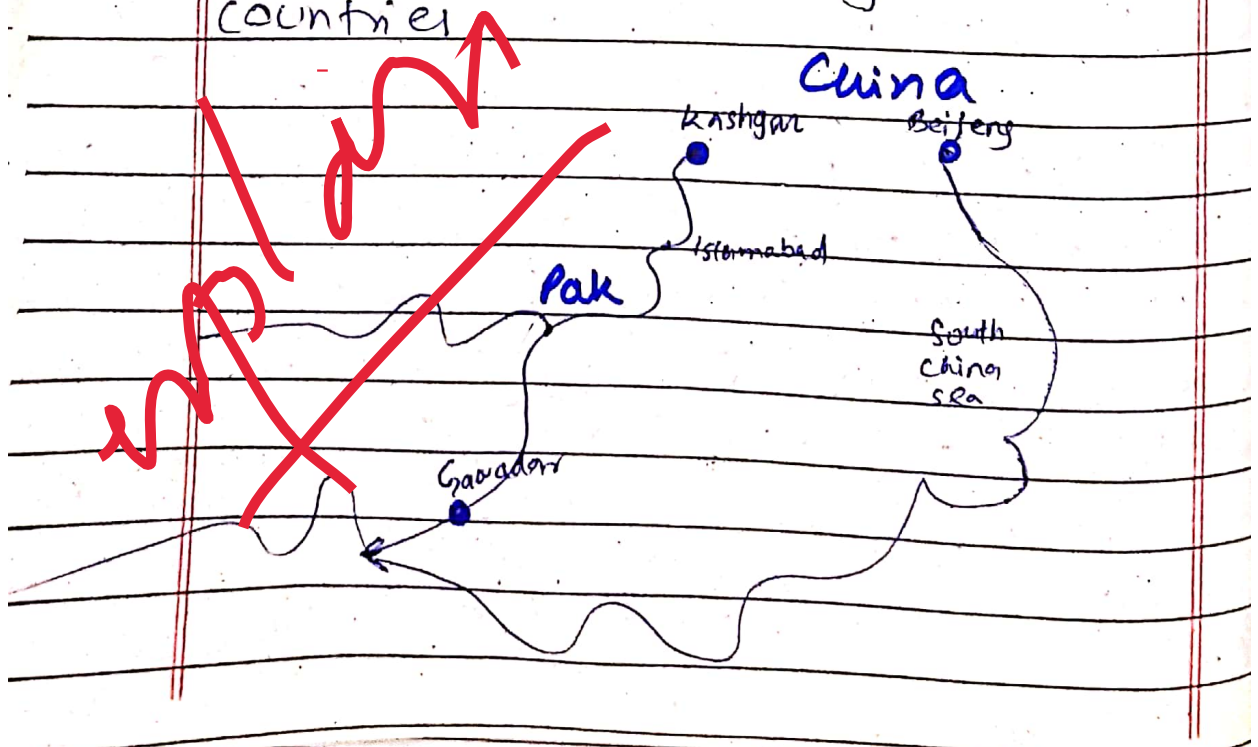 countries
China
Kashgar
Beijeng
Islamabad
Pak
South
China
sea
Gawadar